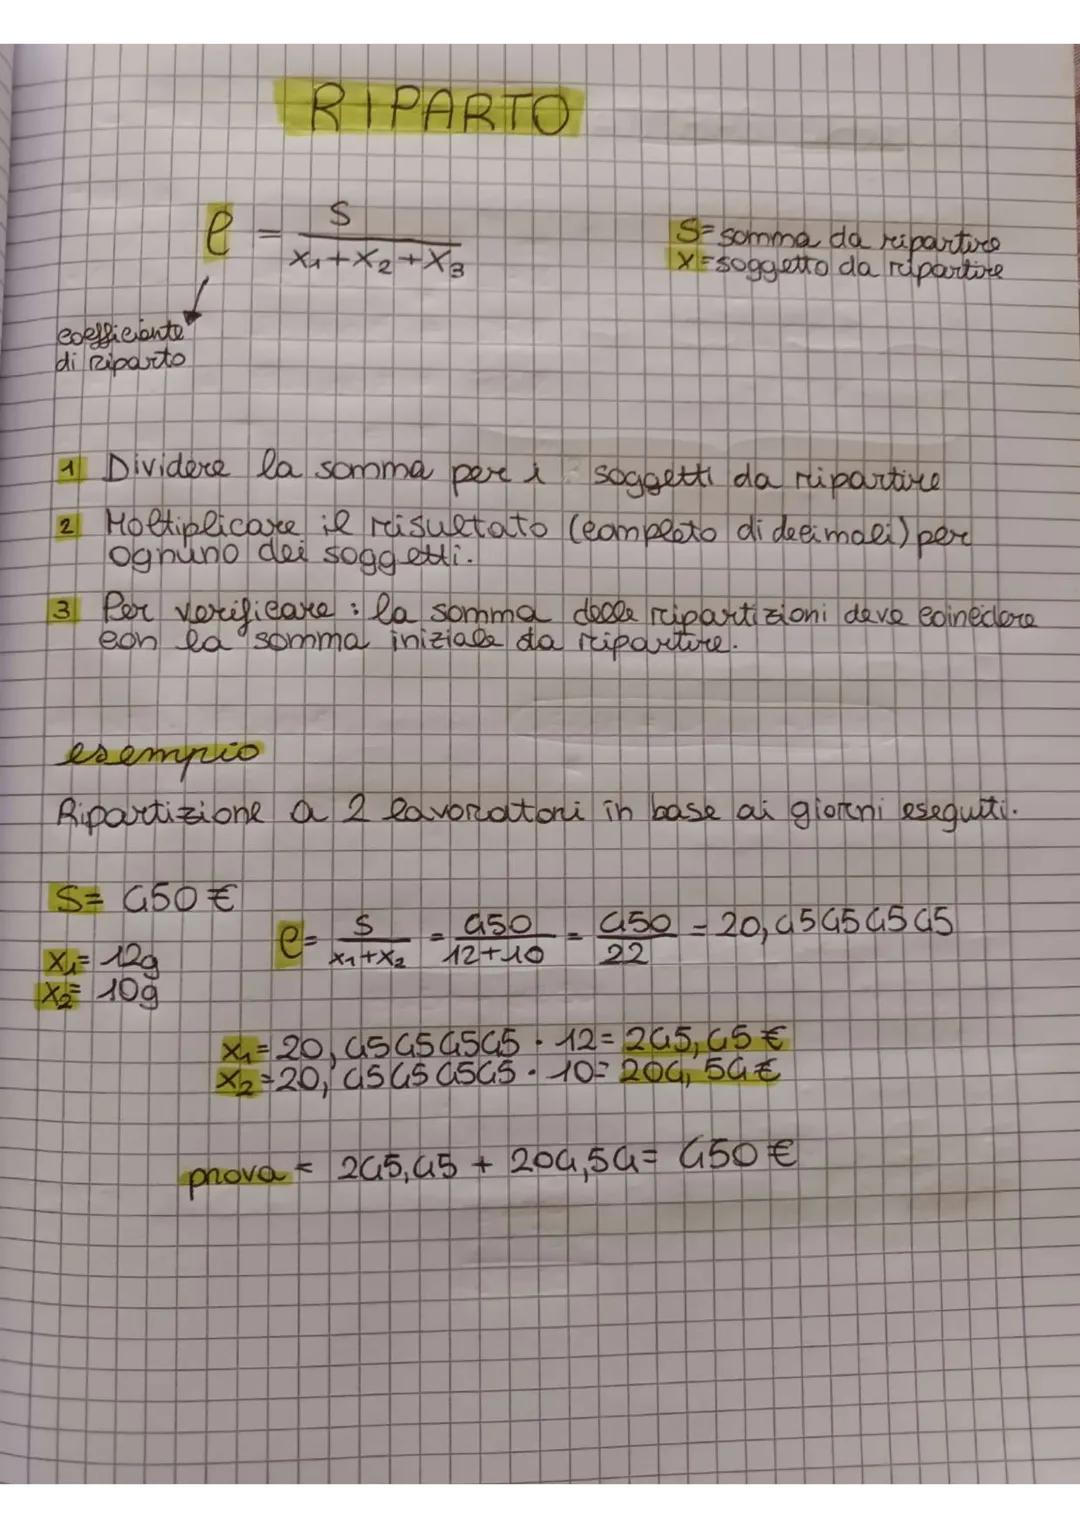 RIPARTO
e = S / x1+x2+x3
S= somma da ripartire
x= soggetto da ripartire
coefficiente
di riparto
1 Dividere la somma per i soggetti da ripartire
2 Moltiplicare il risultato (completo di decimali) per
ognuno dei soggetti.
3 Per verificare: la somma delle ripartizioni deve coincidere
con la somma iniziale da ripartire.
esempio
Ripartizione a 2 lavoratori in base ai giorni eseguiti.
S= 450 €
x1= 12g
x2= 10g
e= S / x1+x2 = 450 / 12+10 = 450 / 22 = 20,45454545
x1= 20,45454545 · 12= 245,45 €
x2=20,45454545 · 10= 204,54 €
prova = 245,45 + 204,54= 450 €